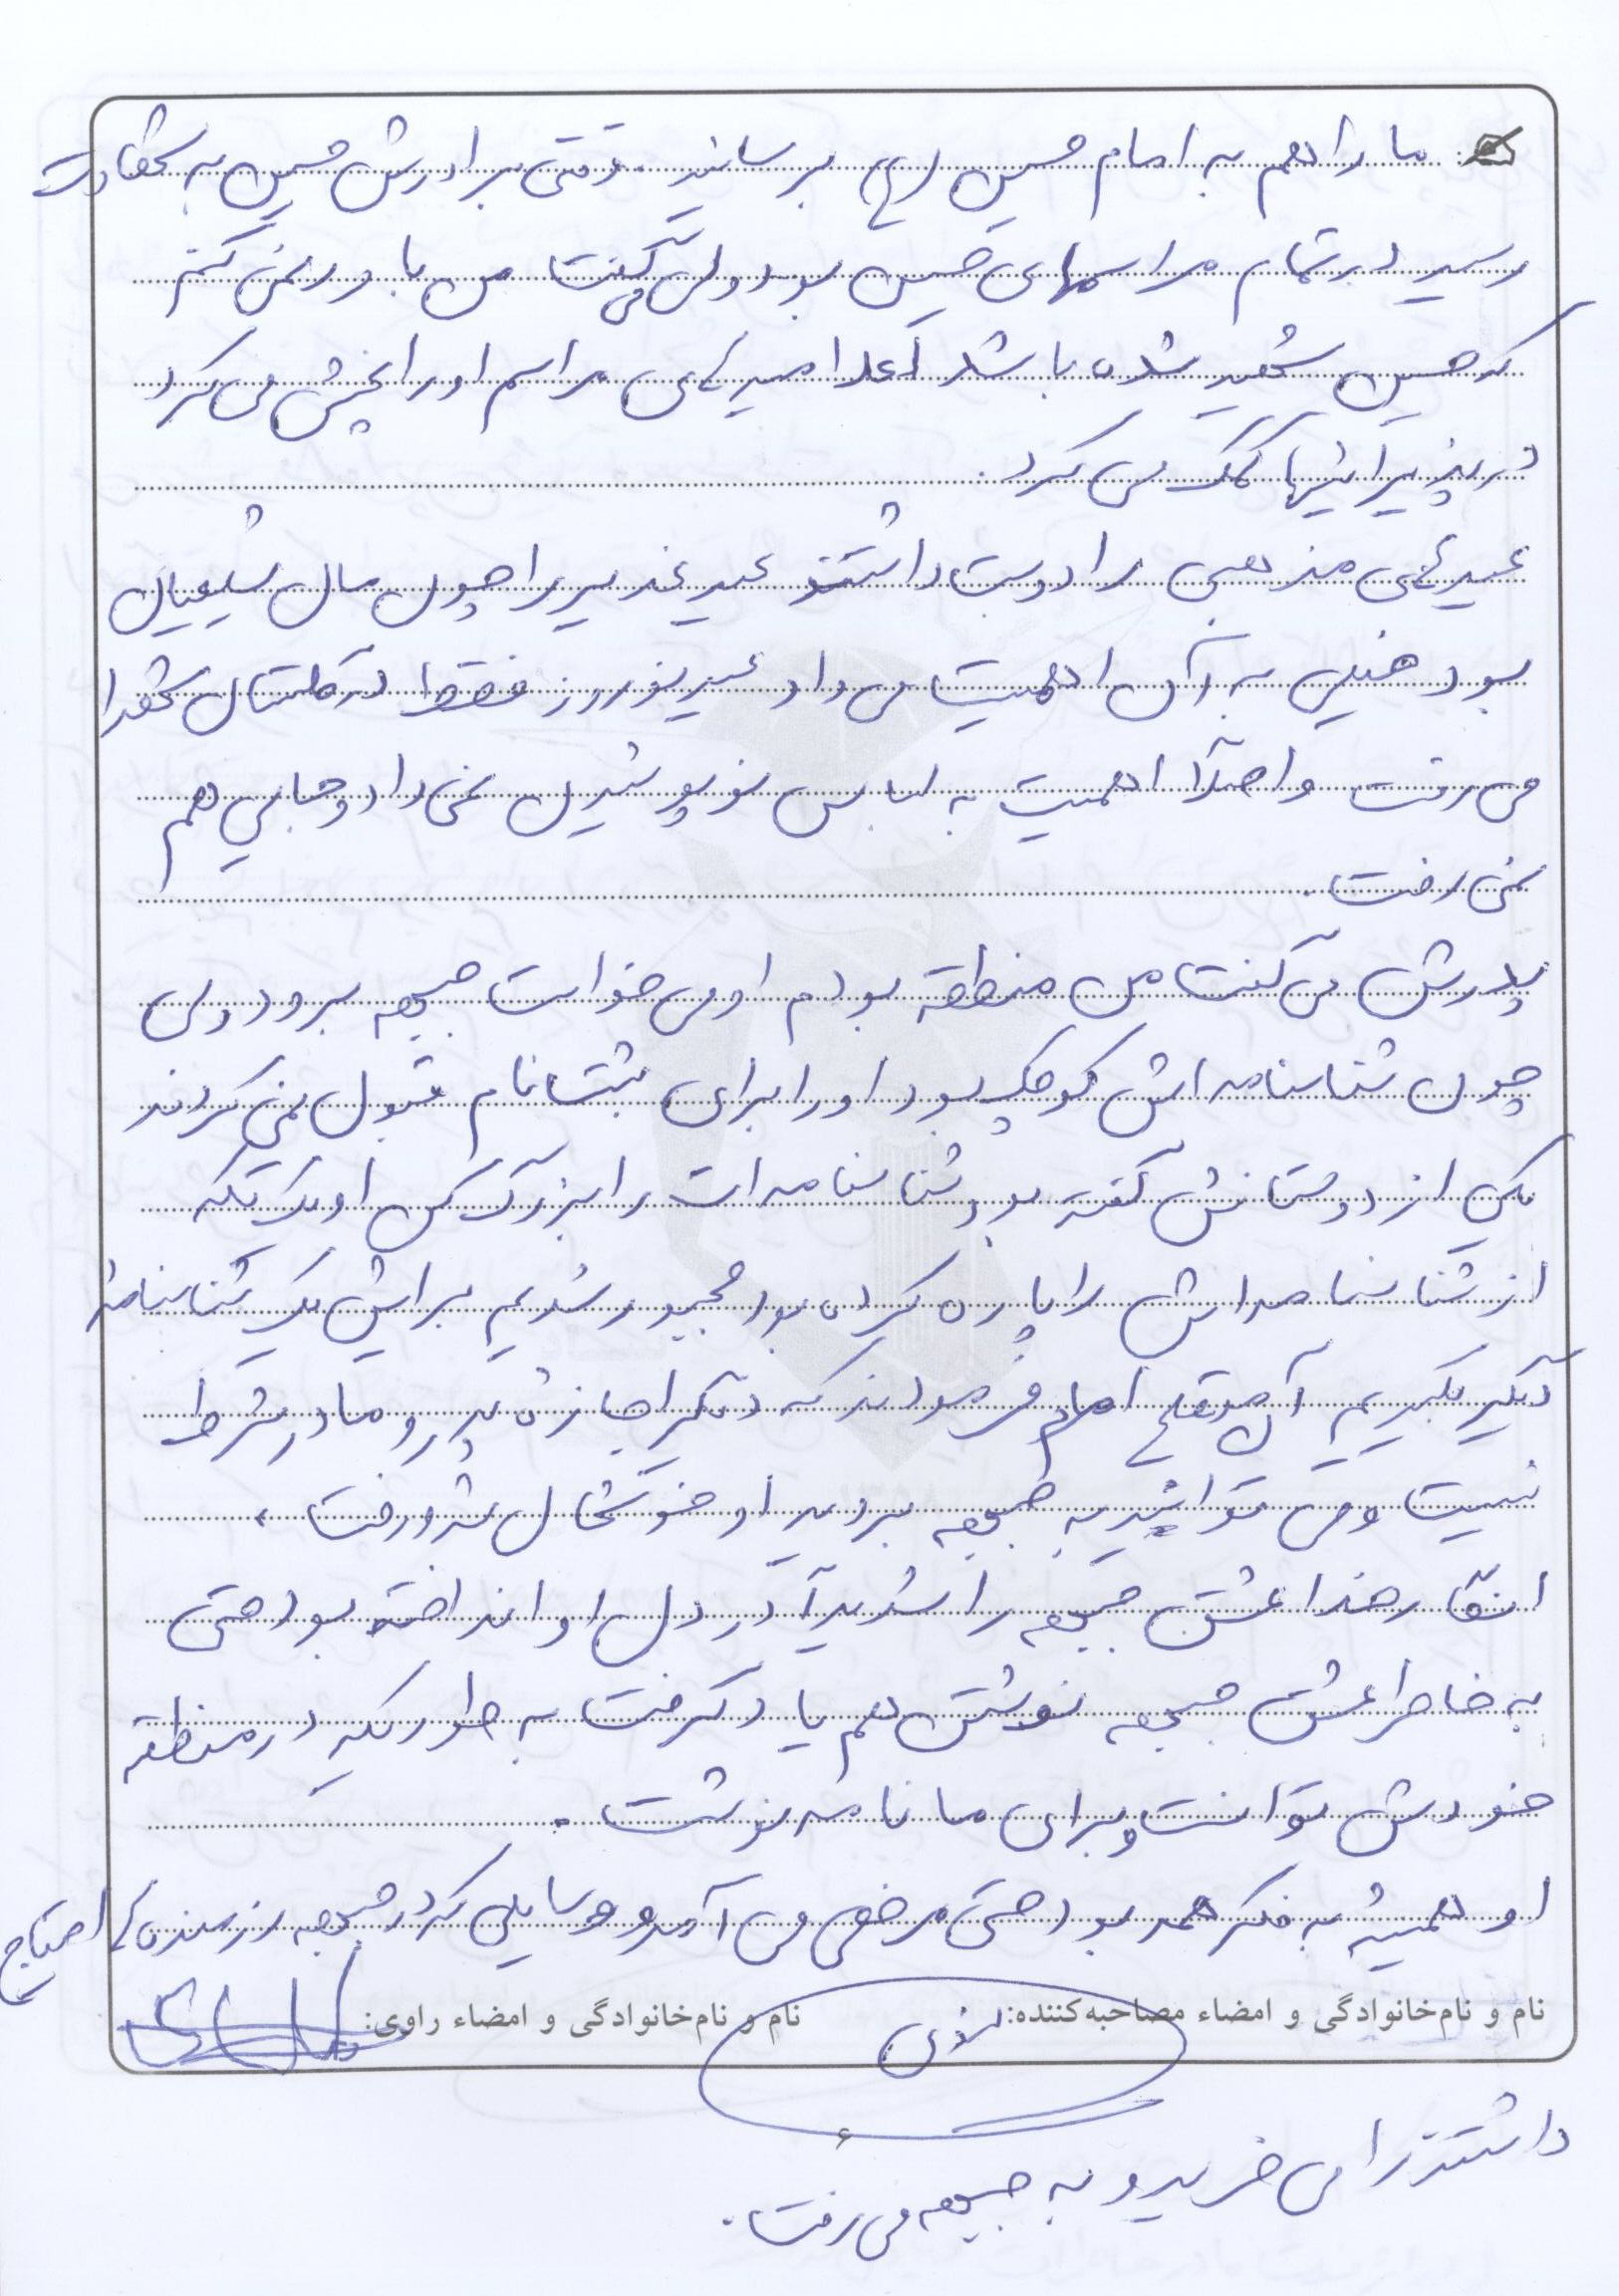 ما را هم به امام حسین (ع) برسانید. وقتی برادرش حسین به شهادت
رسید در تمام مراسمهای حسین بود ولی می‌گفت من باور نمی کنم
که حسین شهید شده باشد اعلامیه های مراسم او را پخش می کرد
در پذیرائیها کمک می کرد.
عید های مذهبی را دوست داشت عید غدیر را چون سال شیعیان
بود خیلی به آن اهمیت می داد عید نوروز فقط در گلستان شهدا
می رفت و اصلاً اهمیت به لباس نو پوشیدن نمی داد و جایی هم
نمی رفت.
پدرش می گفت من منطقه بودم او می خواست جبهه برود ولی
چون شناسنامه اش کوچک بود او را برای ثبت نام قبول نمی کردند
یکی از دوستانش گفته بود شناسنامه ات را بزرگ کن او یک تکه
از شناسنامه اش را پاره کرده بود مجبور شدیم برایش یک شناسنامه
دیگر بگیریم آن موقع امام فرمودند که دیگر اجازه پدر و مادر شرط
نیست و می توانید به جبهه بروید او خوشحال شد و رفت.
انگار خدا عشق جبهه را شدیداً در دل او انداخته بود حتی
به خاطر عشق جبهه نوشتن هم یاد گرفت به طوریکه در منطقه
خودش توانست برای ما نامه نوشت.
او همیشه به فکر همه بود حتی مرخصی می آمد و وسایلی که در جبهه رزمنده ها احتیاج
نام و نام‌خانوادگی و امضاء مصاحبه‌کننده:
نام و نام‌خانوادگی و امضاء راوی:
۶
داشتند را می خرید و به جبهه می رفت.